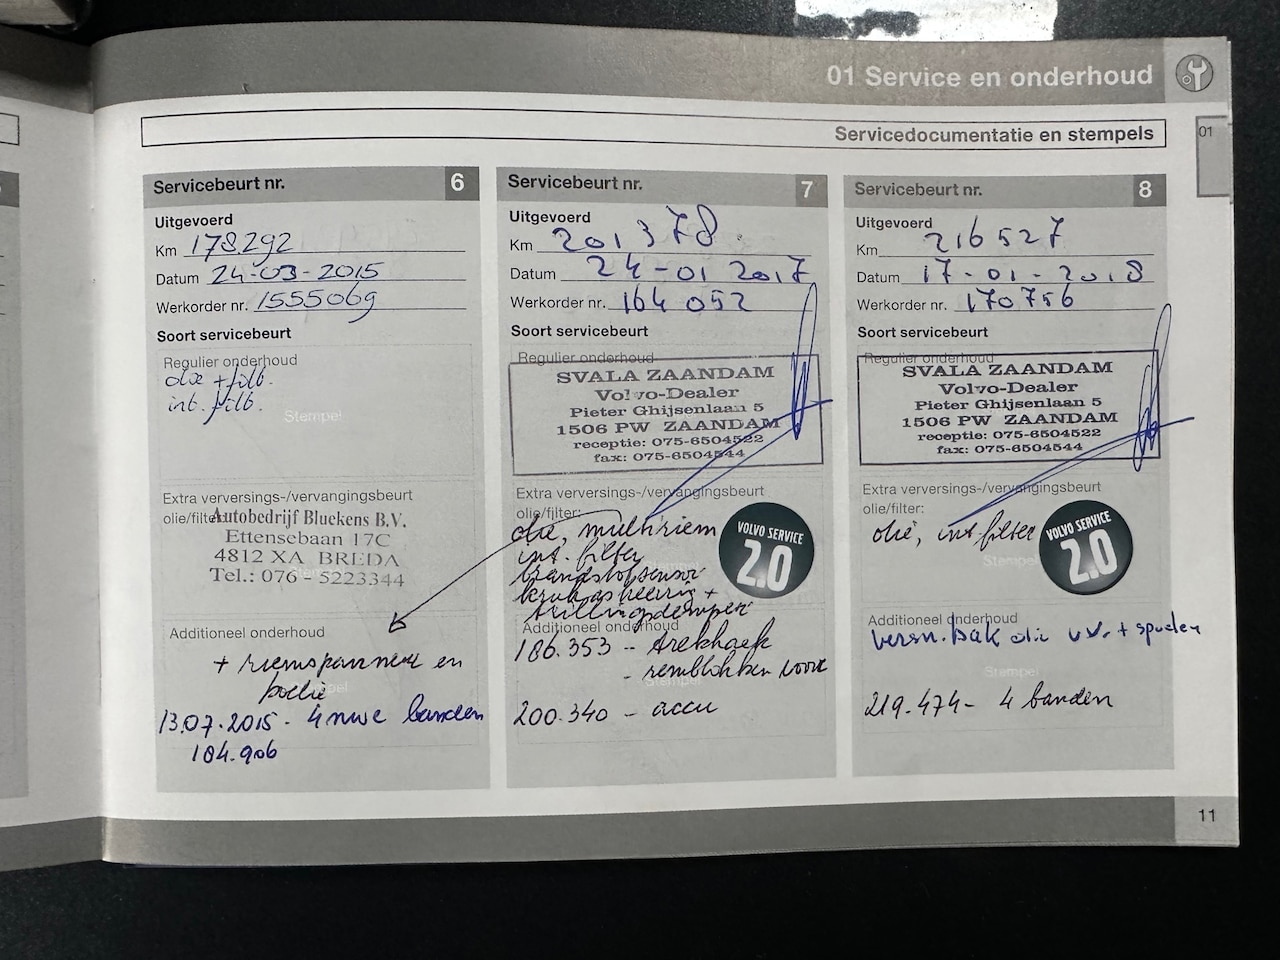 01 Service en onderhoud
01
Servicedocumentatie en stempels
Servicebeurt nr. 6
Uitgevoerd
Km 178292
Datum 24-03-2015
Werkorder nr. 1555069
Soort servicebeurt
Regulier onderhoud
olie + filt.
int. filt.
Stempel
Extra verversings-/vervangingsbeurt
olie/filter:
Autobedrijf Bluekens B.V.
Ettensebaan 17C
4812 XA BREDA
Tel.: 076 - 5223344
Additioneel onderhoud
+ riemspanner en
poelie
13.07.2015 - 4 nwe banden
184.906
Servicebeurt nr. 7
Uitgevoerd
Km 201378
Datum 24-01 2017
Werkorder nr. 164 052
Soort servicebeurt
Regulier onderhoud
SVALA ZAANDAM
Volvo-Dealer
Pieter Ghijsenlaan 5
1506 PW ZAANDAM
receptie: 075-6504522
fax: 075-6504544
Extra verversings-/vervangingsbeurt
olie/filter:
olie, multiriem
int. filter
brandstofsensor
krukaskeerring +
trillingsdemper
VOLVO SERVICE
2.0
Additioneel onderhoud
186.353 - trekhaak
- remblokken voor
200.340 - accu
Servicebeurt nr. 8
Uitgevoerd
Km 216527
Datum 17-01-2018
Werkorder nr. 170756
Soort servicebeurt
Regulier onderhoud
SVALA ZAANDAM
Volvo-Dealer
Pieter Ghijsenlaan 5
1506 PW ZAANDAM
receptie: 075-6504522
fax: 075-6504544
Extra verversings-/vervangingsbeurt
olie/filter:
olie, int filter
Stempel
VOLVO SERVICE
2.0
Additioneel onderhoud
versn.bak olie vv. + spoelen
Stempel
219.474 - 4 banden
11